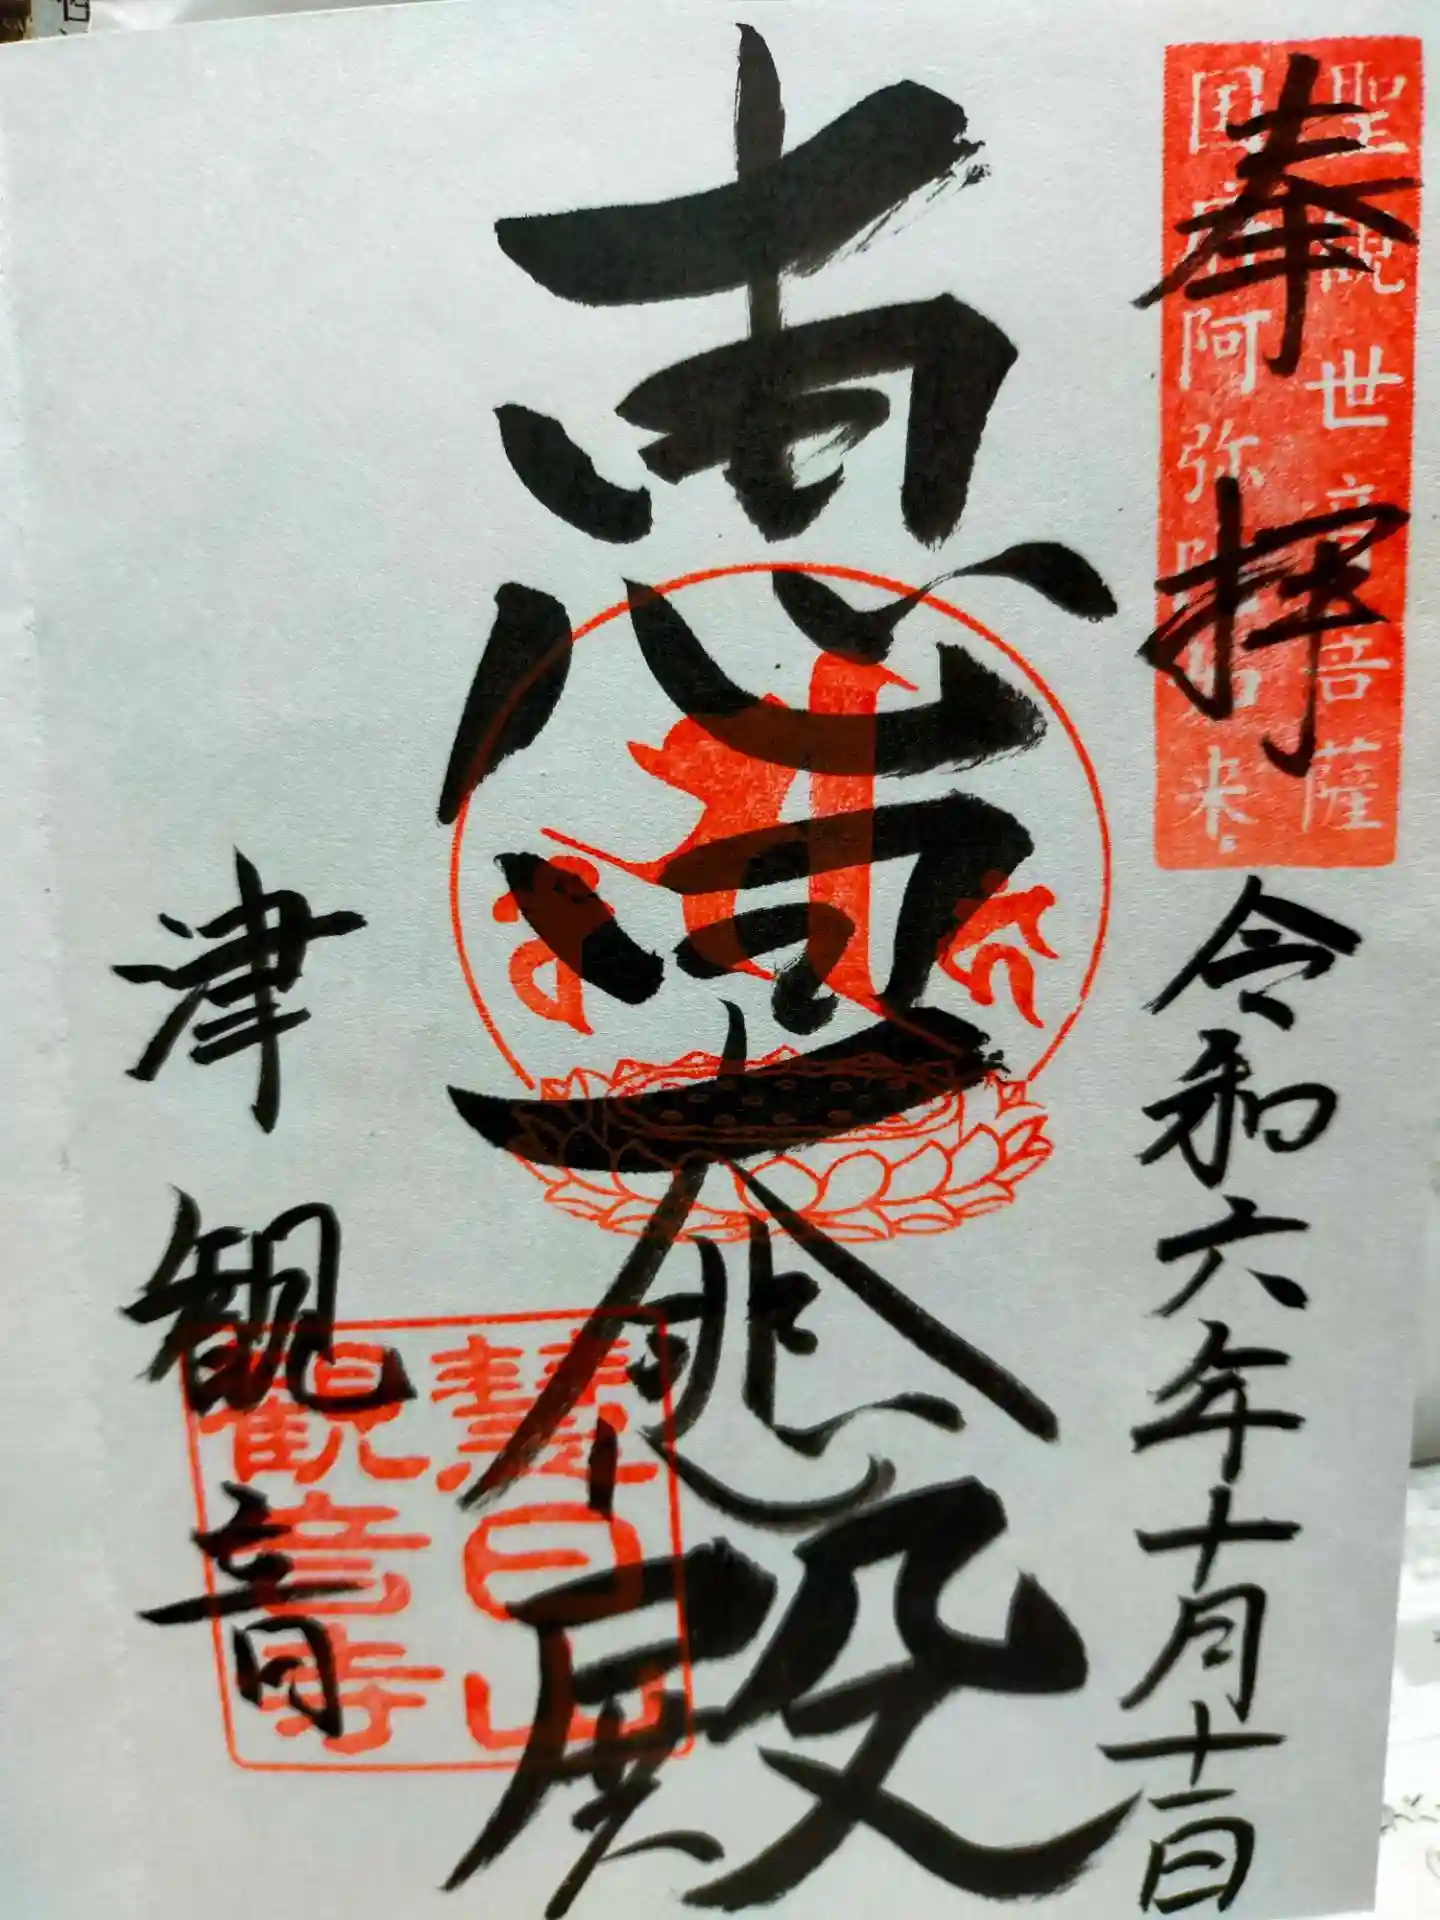 奉拝
聖観世音菩薩
国府阿弥陀如来
令和六年十月十一日
大悲殿
津観音
慧日山
観音寺